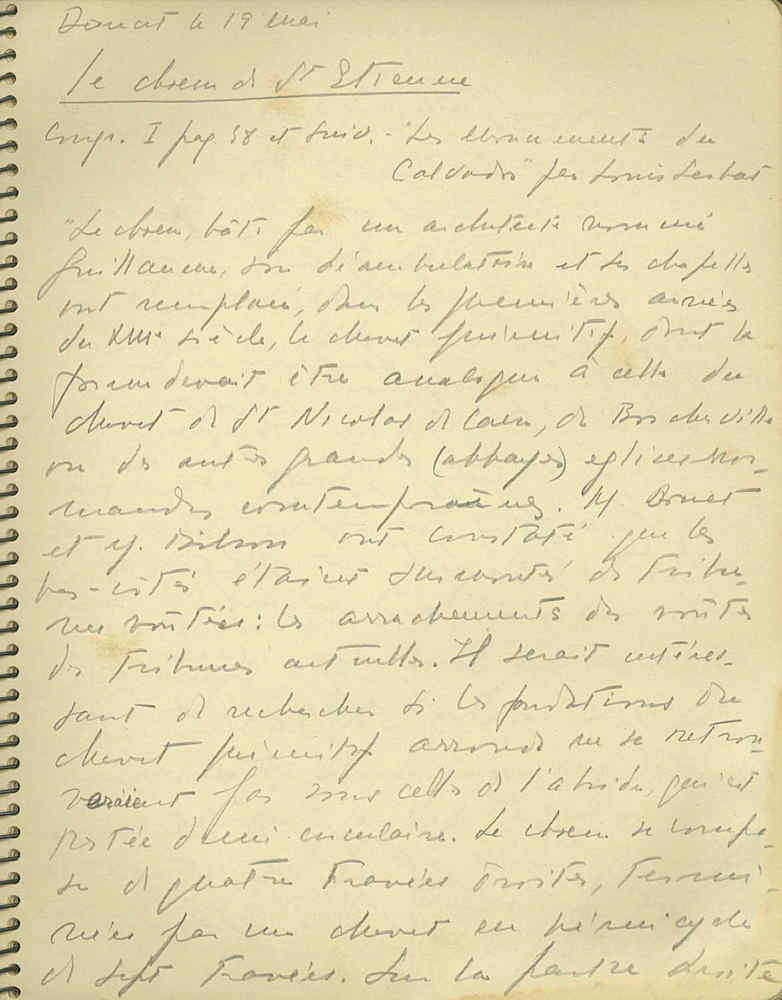 Donat le 19 mai
Le choeur de St Etienne
Congr. I pag 58 et suiv. - "Les monuments du
Calvados" par Louis Serbat
"Le choeur, bâti par un architecte nommé
Guillaume, son déambulatoire et ses chapelles
ont remplacé, dans les premières années
du XIIIe siècle, le chevet primitif, dont la
forme devait être analogue à celle du
chevet de St Nicolas de Caen, de Boscherville
ou des autres grandes (abbayes) eglises nor-
mandes contemporaines. M. Bouet
et M. Bilson ont constaté que les
bas-côtés étaient surmontés de tribu-
nes voûtées: les arrachements des voûtes
des tribunes actuelles. Il serait intéres-
sant de rechercher si les fondations du
chevet primitif arrondi ne se retrou-
veraient pas sous celles de l'abside, qui est
restée demi circulaire. Le choeur se compo-
se de quatre travées droites, termi-
nées par un chevet en hémicycle
de sept travées. Sur la partie droite